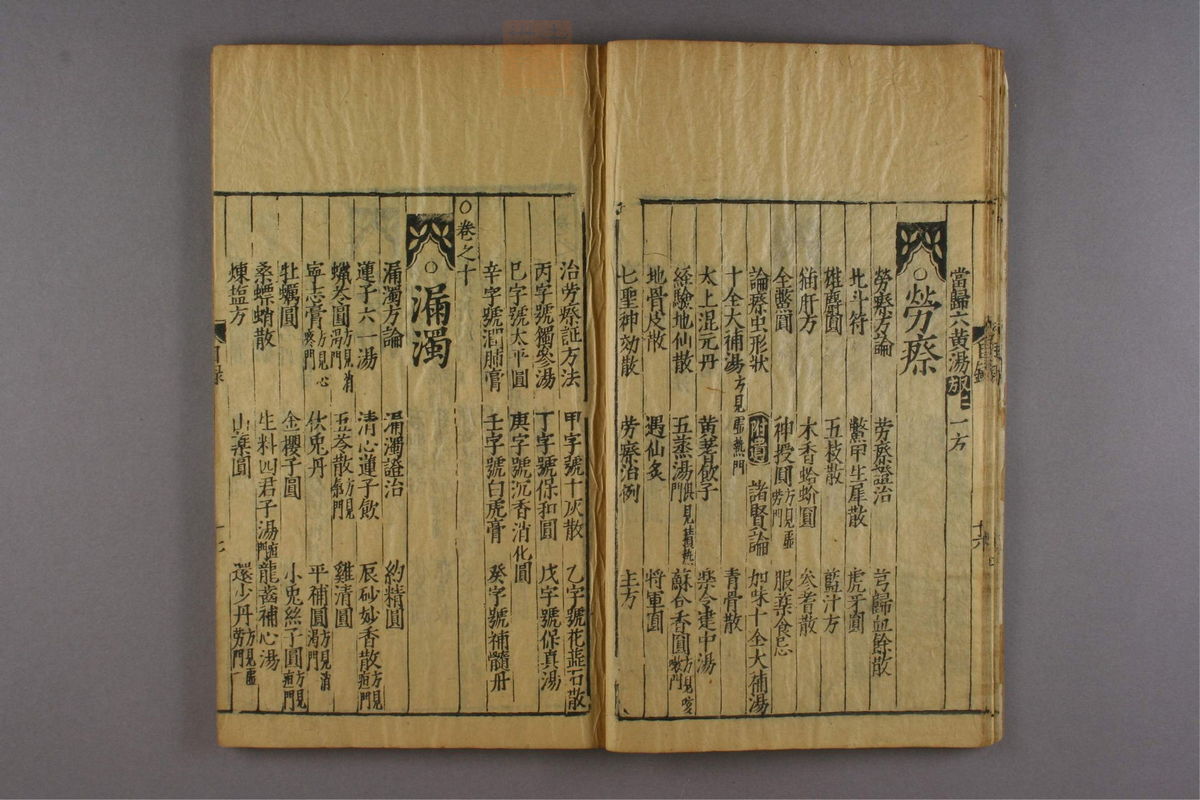 當歸六黃湯 一方
勞瘵
勞瘵方論 勞瘵證治 芎歸血餘散
北斗符 鱉甲生犀散 虎牙圓
雄麝圓 五枝散 藍汁方
獺肝方 木香蛤蚧圓 參耆散
全鱉圓 神授圓方見虛勞門 服藥食忌
論瘵虫形狀 附遺 諸賢論 加味十全大補湯
十全大補湯方見虛熱門 青骨散
太上混元丹 黃耆飲子 樂令建中湯
経驗地仙散 五蒸湯俱見積熱門 蘇合香圓方見咳嗽門
地骨皮散 遇仙炙 將軍圓
七聖神効散 勞瘵治例 主方
治勞瘵証方法 甲字號十灰散 乙字號花蕋石散
丙字號獨參湯 丁字號保和圓 戊字號保真湯
巳字號太平圓 庚字號沉香消化圓
辛字號潤肺膏 壬字號白虎膏 癸字號補髓丹
○卷之十
○漏濁
漏濁方論 漏濁證治 約精圓
蓮子六一湯 清心蓮子飲 辰砂妙香散方見疸門
蠟苓圓方見消渴門 五苓散方見門 雞清圓
寧志膏方見心門 伏兎丹 平補圓方見消渴門
牡蠣圓 金櫻子圓 小兎絲子圓方見疸門
桑螵蛸散 生料四君子湯 龍齒補心湯
煉塩方 山藥圓 還少丹方見虛勞門